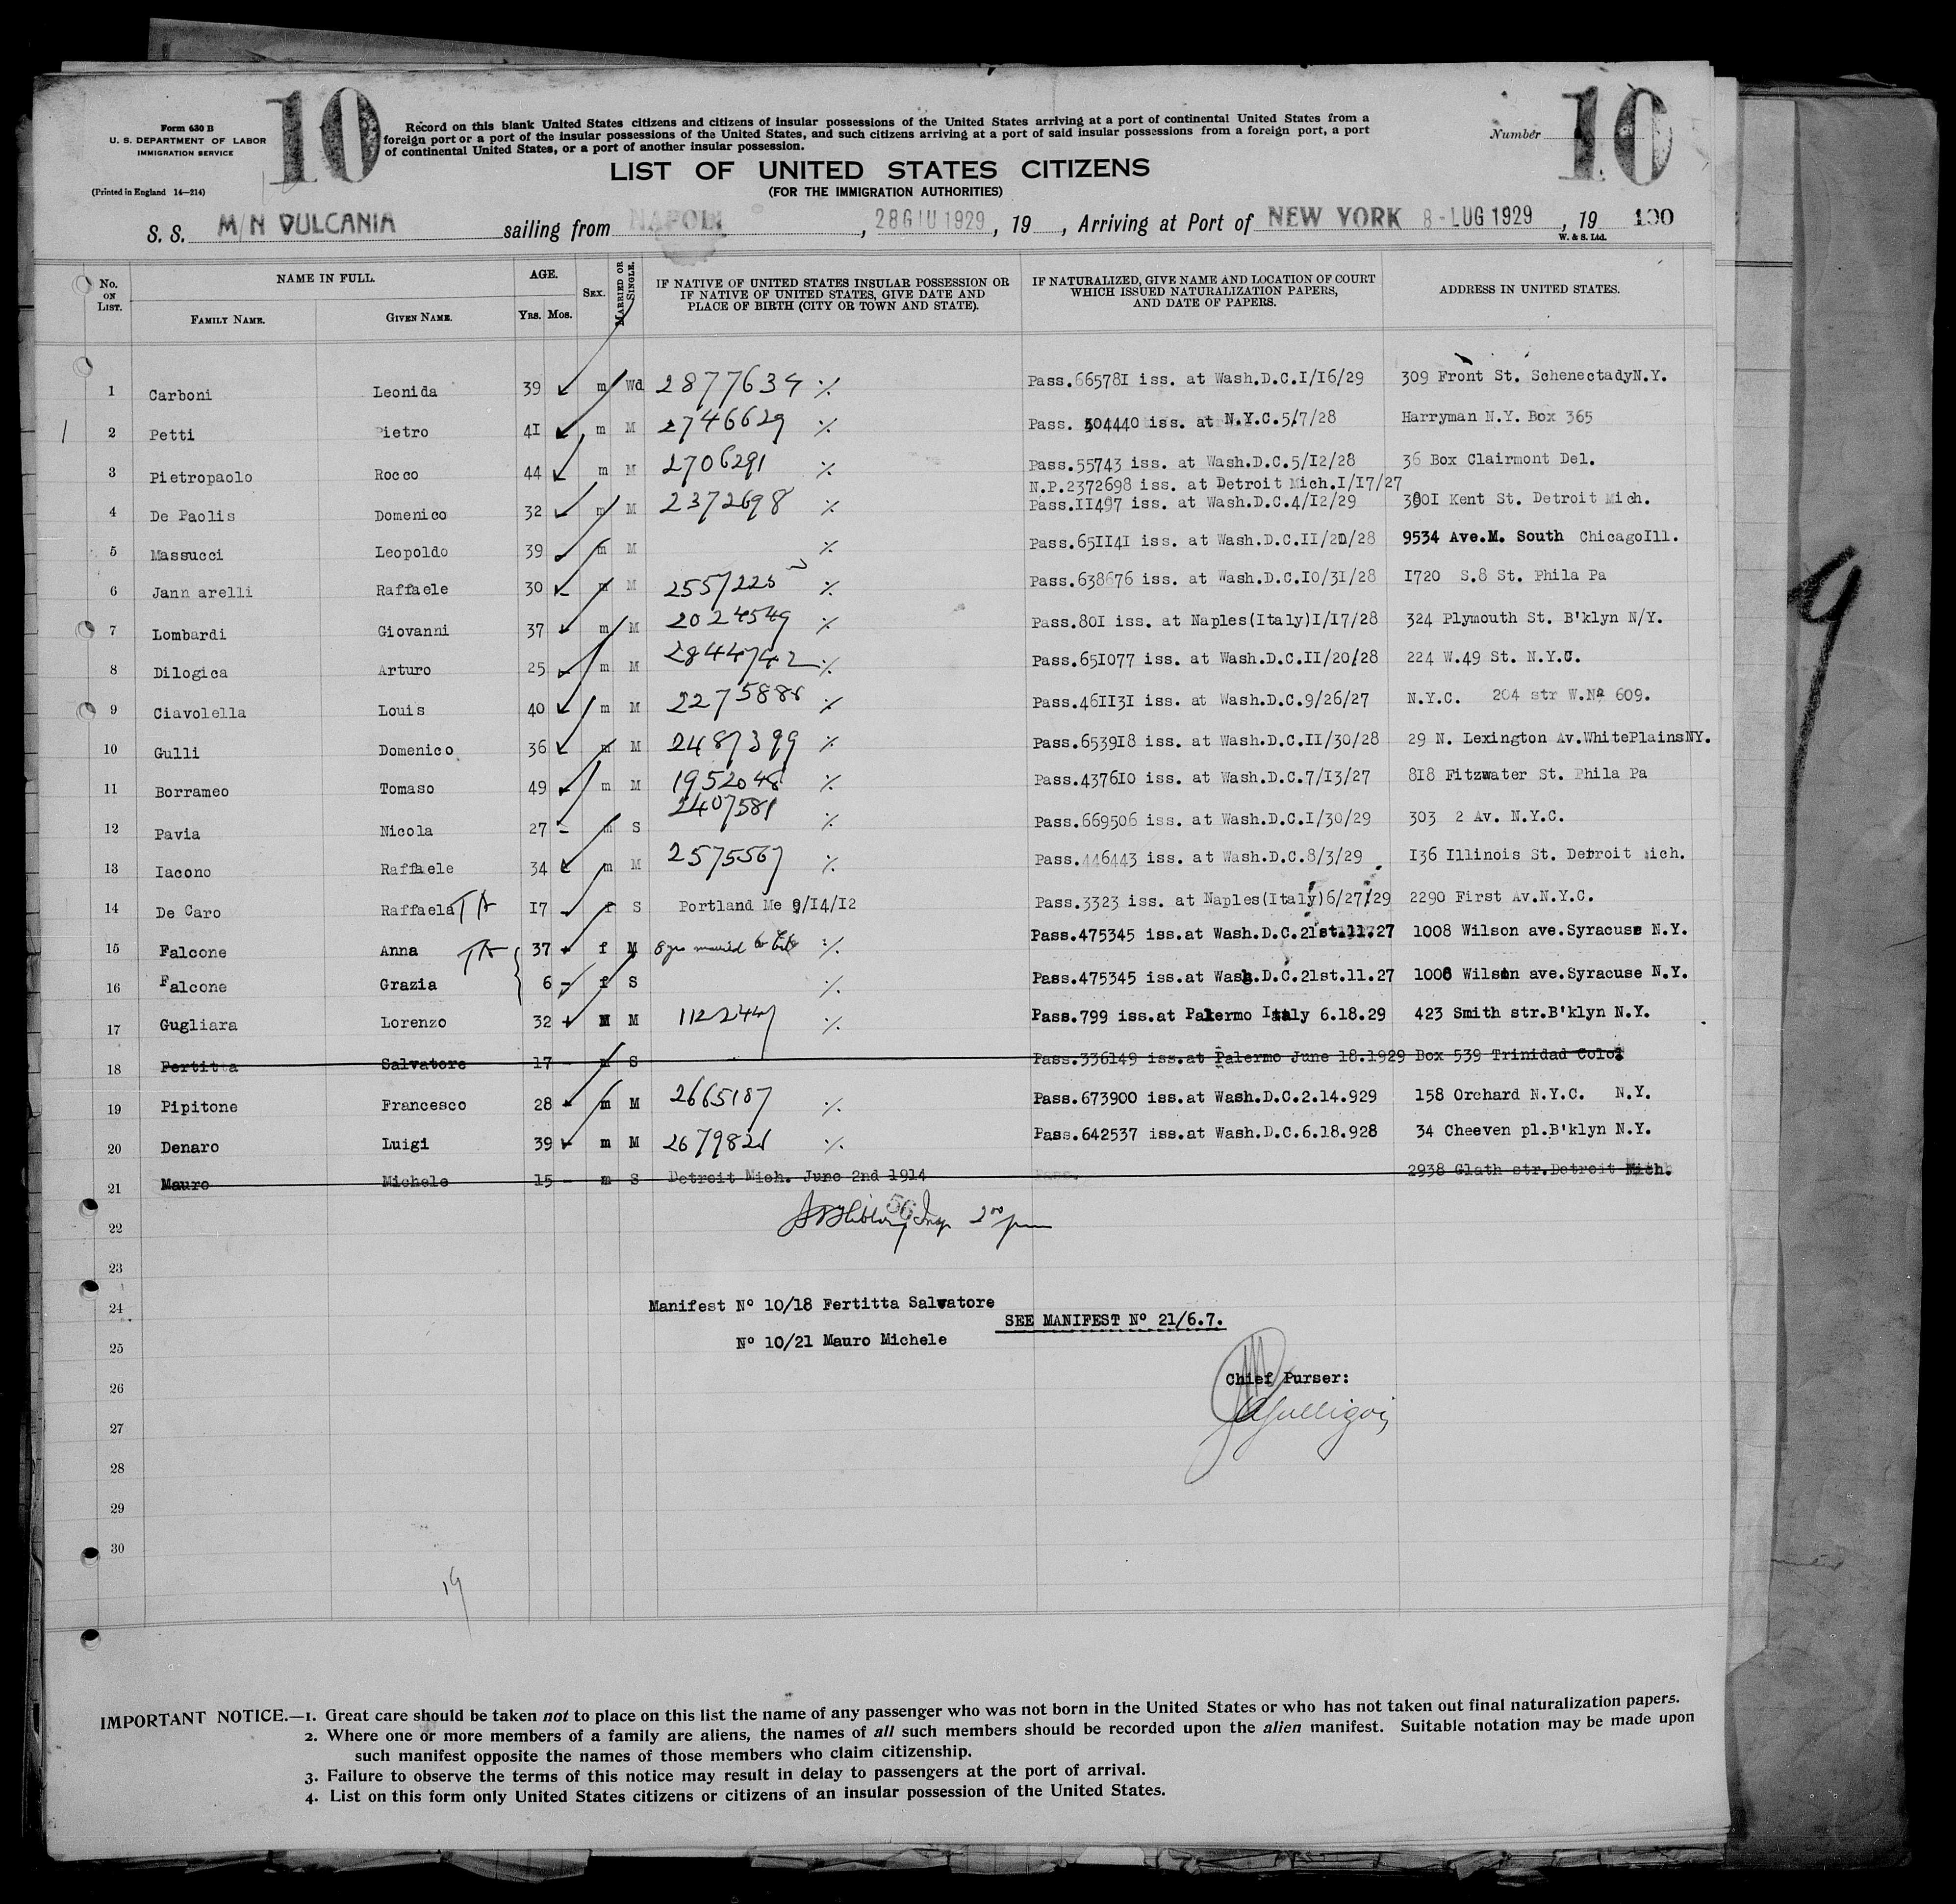 Form 630 B
U. S. DEPARTMENT OF LABOR
IMMIGRATION SERVICE
(Printed in England 14—214)
10
Record on this blank United States citizens and citizens of insular possessions of the United States arriving at a port of continental United States from a
foreign port or a port of the insular possessions of the United States, and such citizens arriving at a port of said insular possessions from a foreign port, a port
of continental United States, or a port of another insular possession.
Number 10
LIST OF UNITED STATES CITIZENS
(FOR THE IMMIGRATION AUTHORITIES)
S. S. M/N VULCANIA sailing from NAPOLI, 28 GIU 1929, 19 , Arriving at Port of NEW YORK 8 - LUG 1929, 19 100
W. & S. Ltd.
No. ON LIST. NAME IN FULL. AGE. SEX. MARRIED OR SINGLE. IF NATIVE OF UNITED STATES INSULAR POSSESSION OR IF NATIVE OF UNITED STATES, GIVE DATE AND PLACE OF BIRTH (CITY OR TOWN AND STATE). IF NATURALIZED, GIVE NAME AND LOCATION OF COURT WHICH ISSUED NATURALIZATION PAPERS, AND DATE OF PAPERS. ADDRESS IN UNITED STATES.
FAMILY NAME. GIVEN NAME. YRS. MOS.
1 Carboni Leonida 39 m Wd 2877634 % Pass.665781 iss. at Wash.D.C.I/16/29 309 Front St. SchenectadyN.Y.
2 Petti Pietro 41 m M 2746629 % Pass. 504440 iss. at N.Y.C.5/7/28 Harryman N.Y. Box 365
3 Pietropaolo Rocco 44 m M 2706291 % Pass.55743 iss. at Wash.D.C.5/12/28 36 Box Clairmont Del.
N.P.2372698 iss. at Detroit Mich.I/17/27
4 De Paolis Domenico 32 m M 2372698 % Pass.II497 iss. at Wash.D.C.4/12/29 3801 Kent St. Detroit Mich.
5 Massucci Leopoldo 39 m M % Pass.65II4I iss. at Wash.D.C.II/20/28 9534 Ave.M. South ChicagoIll.
6 Jann arelli Raffaele 30 m M 2557225 % Pass.638676 iss. at Wash.D.C.I0/31/28 I720 S.8 St. Phila Pa
7 Lombardi Giovanni 37 m M 2024549 % Pass.80I iss. at Naples(Italy)I/17/28 324 Plymouth St. B'klyn N/Y.
8 Dilogica Arturo 25 m M 2844742 % Pass.65I077 iss. at Wash.D.C.II/20/28 224 W.49 St. N.Y.C.
9 Ciavolella Louis 40 m M 2275888 % Pass.46II3I iss. at Wash.D.C.9/26/27 N.Y.C. 204 str W.Nº 609.
10 Gulli Domenico 36 m M 2487399 % Pass.6539I8 iss. at Wash.D.C.II/30/28 29 N. Lexington Av.WhitePlainsNY.
11 Borrameo Tomaso 49 m M 1952048 % Pass.4376I0 iss. at Wash.D.C.7/I3/27 8I8 Fitzwater St. Phila Pa
12 Pavia Nicola 27 m S 2407581 % Pass.669506 iss. at Wash.D.C.I/30/29 303 2 Av. N.Y.C.
13 Iacono Raffaele 34 m M 2575567 % Pass.446443 iss. at Wash.D.C.8/3/29 I36 Illinois St. Detroit Mich.
14 De Caro Raffaela I7 f S Portland Me 9/I4/I2 Pass.3323 iss. at Naples(Italy)6/27/29 2290 First Av.N.Y.C.
15 Falcone Anna 37 f M 8 yrs married to % Pass.475345 iss.at Wash.D.C.21st.11.27 1008 Wilson ave.Syracuse N.Y.
16 Falcone Grazia 6 f S % Pass.475345 iss.at Wash.D.C.21st.11.27 1008 Wilson ave.Syracuse N.Y.
17 Gugliara Lorenzo 32 M M 1122447 % Pass.799 iss.at Palermo Italy 6.18.29 423 Smith str.B'klyn N.Y.
18 Fertitta Salvatore 17 m S Pass.336149 iss.at Palermo June 18.1929 Box 539 Trinidad Colo.
19 Pipitone Francesco 28 m M 2665187 % Pass.673900 iss.at Wash.D.C.2.14.929 158 Orchard N.Y.C. N.Y.
20 Denaro Luigi 39 m M 2679821 % Pass.642537 iss.at Wash.D.C.6.18.928 34 Cheeven pl.B'klyn N.Y.
21 Mauro Michele 15 m S Detroit Mich. June 2nd 1914 2938 Glath str.Detroit Mich.
22 56 Insp 2⁰⁰ pm
23
24 Manifest Nº 10/18 Fertitta Salvatore
SEE MANIFEST Nº 21/6.7.
25 Nº 10/21 Mauro Michele
26 Chief Purser:
27
28
29
30
19
IMPORTANT NOTICE.—1. Great care should be taken not to place on this list the name of any passenger who was not born in the United States or who has not taken out final naturalization papers.
2. Where one or more members of a family are aliens, the names of all such members should be recorded upon the alien manifest. Suitable notation may be made upon
such manifest opposite the names of those members who claim citizenship.
3. Failure to observe the terms of this notice may result in delay to passengers at the port of arrival.
4. List on this form only United States citizens or citizens of an insular possession of the United States.
9